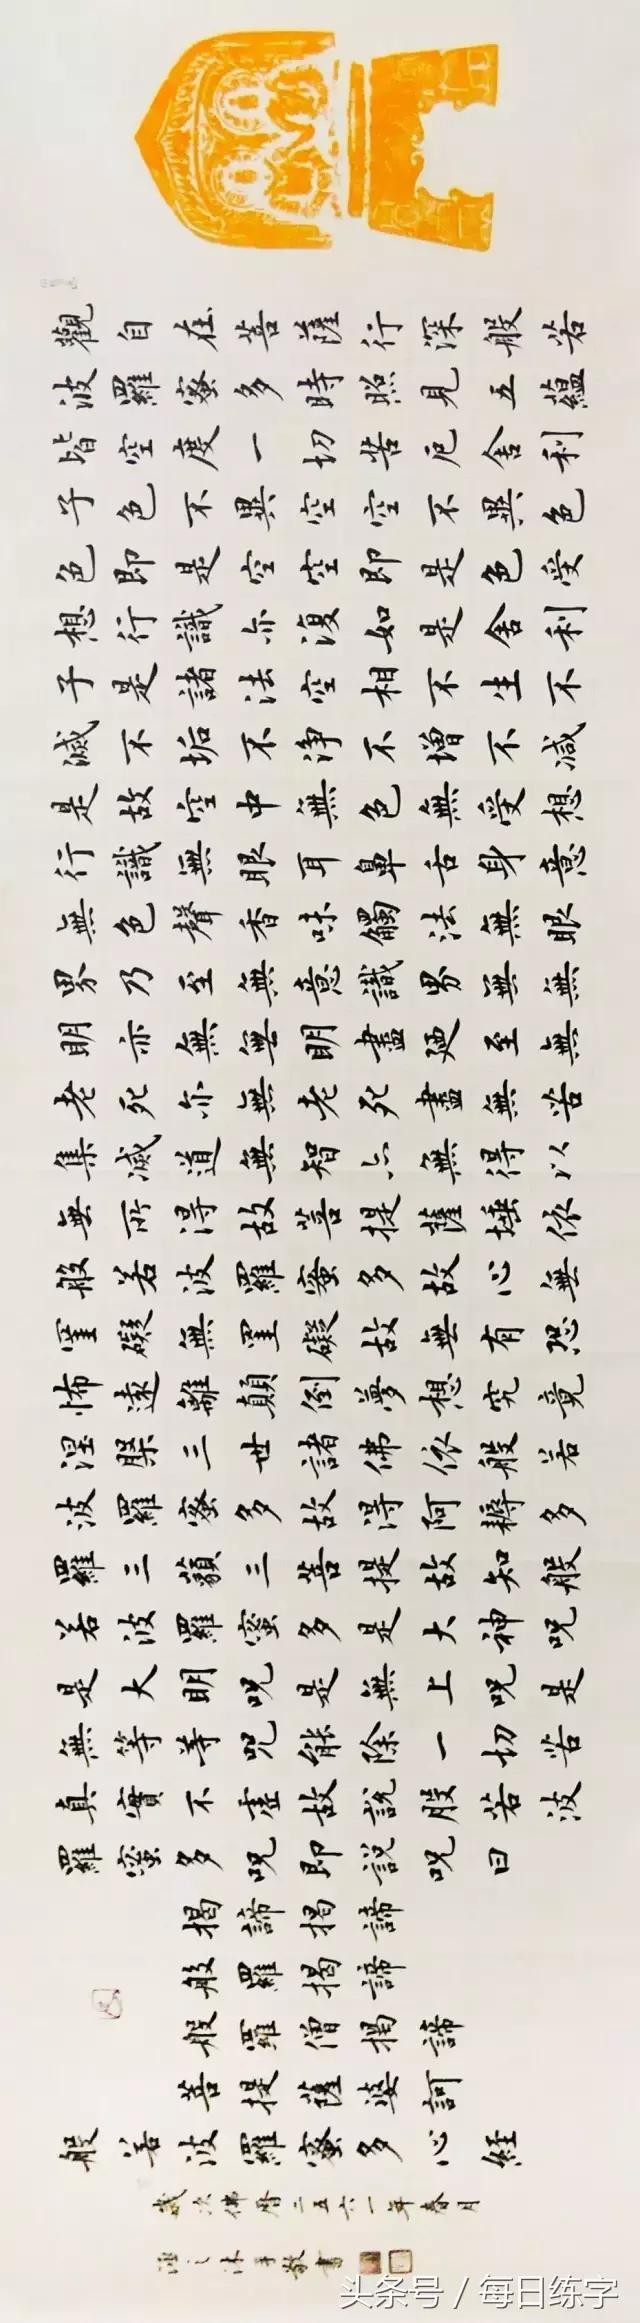 觀自在菩薩行深般若
波羅蜜多時照見五蘊
皆空度一切苦厄舍利
子色不異空空不異色
色即是空空即是色受
想行識亦復如是舍利
子是諸法空相不生不
滅不垢不淨不增不減
是故空中無色無受想
行識無眼耳鼻舌身意
無色聲香味觸法無眼
界乃至無意識界無無
明亦無無明盡廼至無
老死亦無老死盡無苦
集滅道無智亦無得以
無所得故菩提薩埵依
般若波羅蜜多故心無
罣礙無罣礙故無有恐
怖遠離顛倒夢想究竟
涅槃三世諸佛依般若
波羅蜜多故得阿耨多
羅三藐三菩提故知般
若波羅蜜多是大神咒
是大明咒是無上咒是
無等等咒能除一切苦
真實不虛故說般若波
羅蜜多咒即說咒曰
揭諦揭諦
般羅揭諦
般羅僧揭諦
菩提薩婆訶
般若波羅蜜多心經
歲次佛曆二五六一年春月
之沐手敬書
头条号 / 每日练字